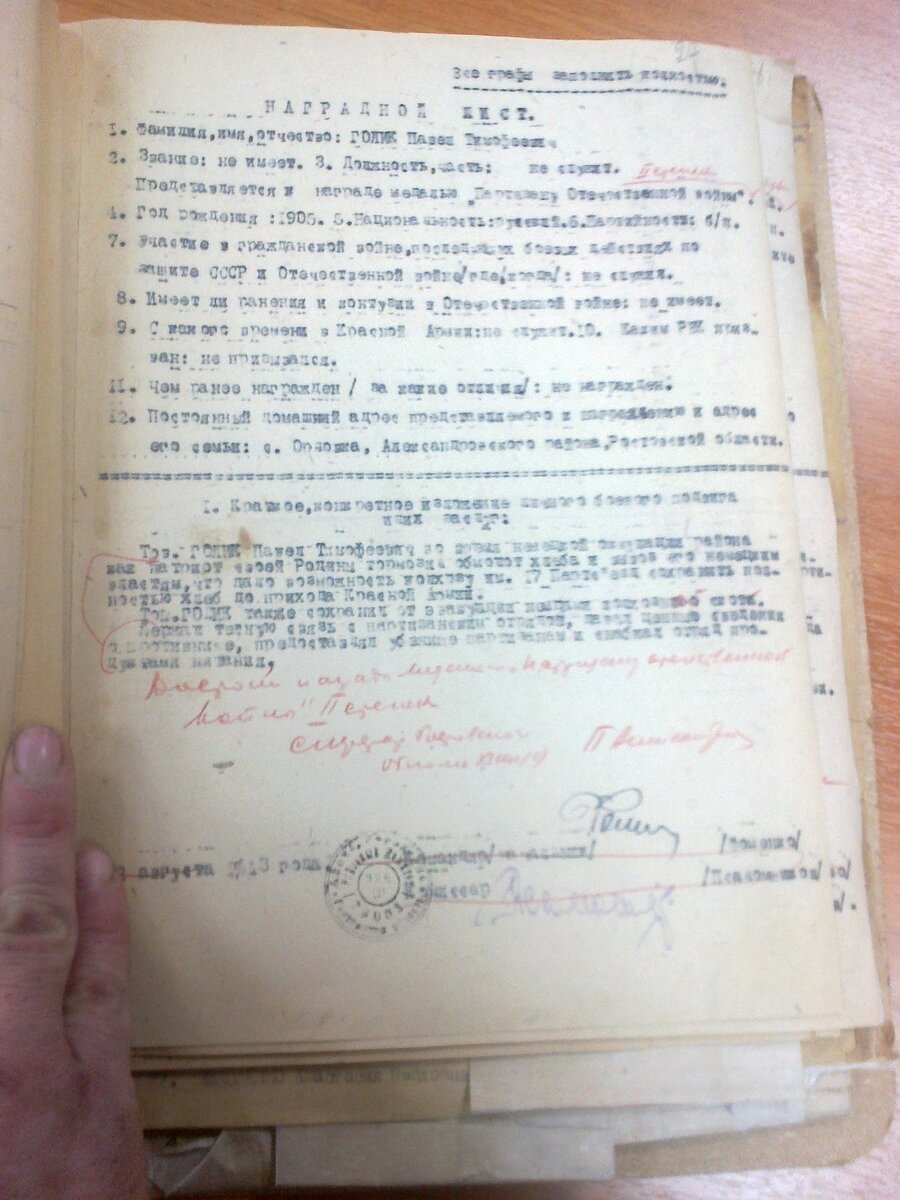 24
Все графы заполнить полностью.
НАГРАДНОЙ ЛИСТ.
1. Фамилия,имя,отчество: ГОЛИК Павел Тимофеевич
2. Звание: не имеет. 3. Должность,часть: не служит.
II степени
Представляется к награде медалью „Партизану Отечественной войны".
4. Год рождения :1905. 5.Национальность:русский.6.Партийность: б/п.
7. Участие в гражданской войне,последующих боевых действиях по
защите СССР и Отечественной войне/где,когда/: не служил.
8. Имеет ли ранения и контузии в Отечественной войне: не имеет.
9. С какого времени в Красной Армии:не служит.10. Каким РВК приз-
ван: не призывался.
11. Чем ранее награжден / за какие отличия/: не награжден.
12. Постоянный домашний адрес представляемого к награждению и адрес
его семьи: с. Орловка, Александровского района,Ростовской области.
I. Краткое,конкретное изложение личного боевого подвига
или заслуг:
Тов. ГОЛИК Павел Тимофеевич во время немецкой оккупации района
как патриот своей Родины тормозил обмолот хлеба и вывоз его немецким
властям,что дало возможность колхозу им. 17 Партс'езда сохранить пол-
ностью хлеб до прихода Красной Армии.
Тов.ГОЛИК также сохранил от эвакуации немцами колхозный скот.
Держал тесную связь с партизанским отрядом, давал ценные сведения
о противнике, предоставлял убежище партизанам и снабжал отряд про-
дуктами питания.
Достоин награды медалью „Партизану отечественной
войны" II степени
секретарь Ростовского
обкома ВКП(б)
августа 1943 года
Командир /Фоменко/
Комиссар